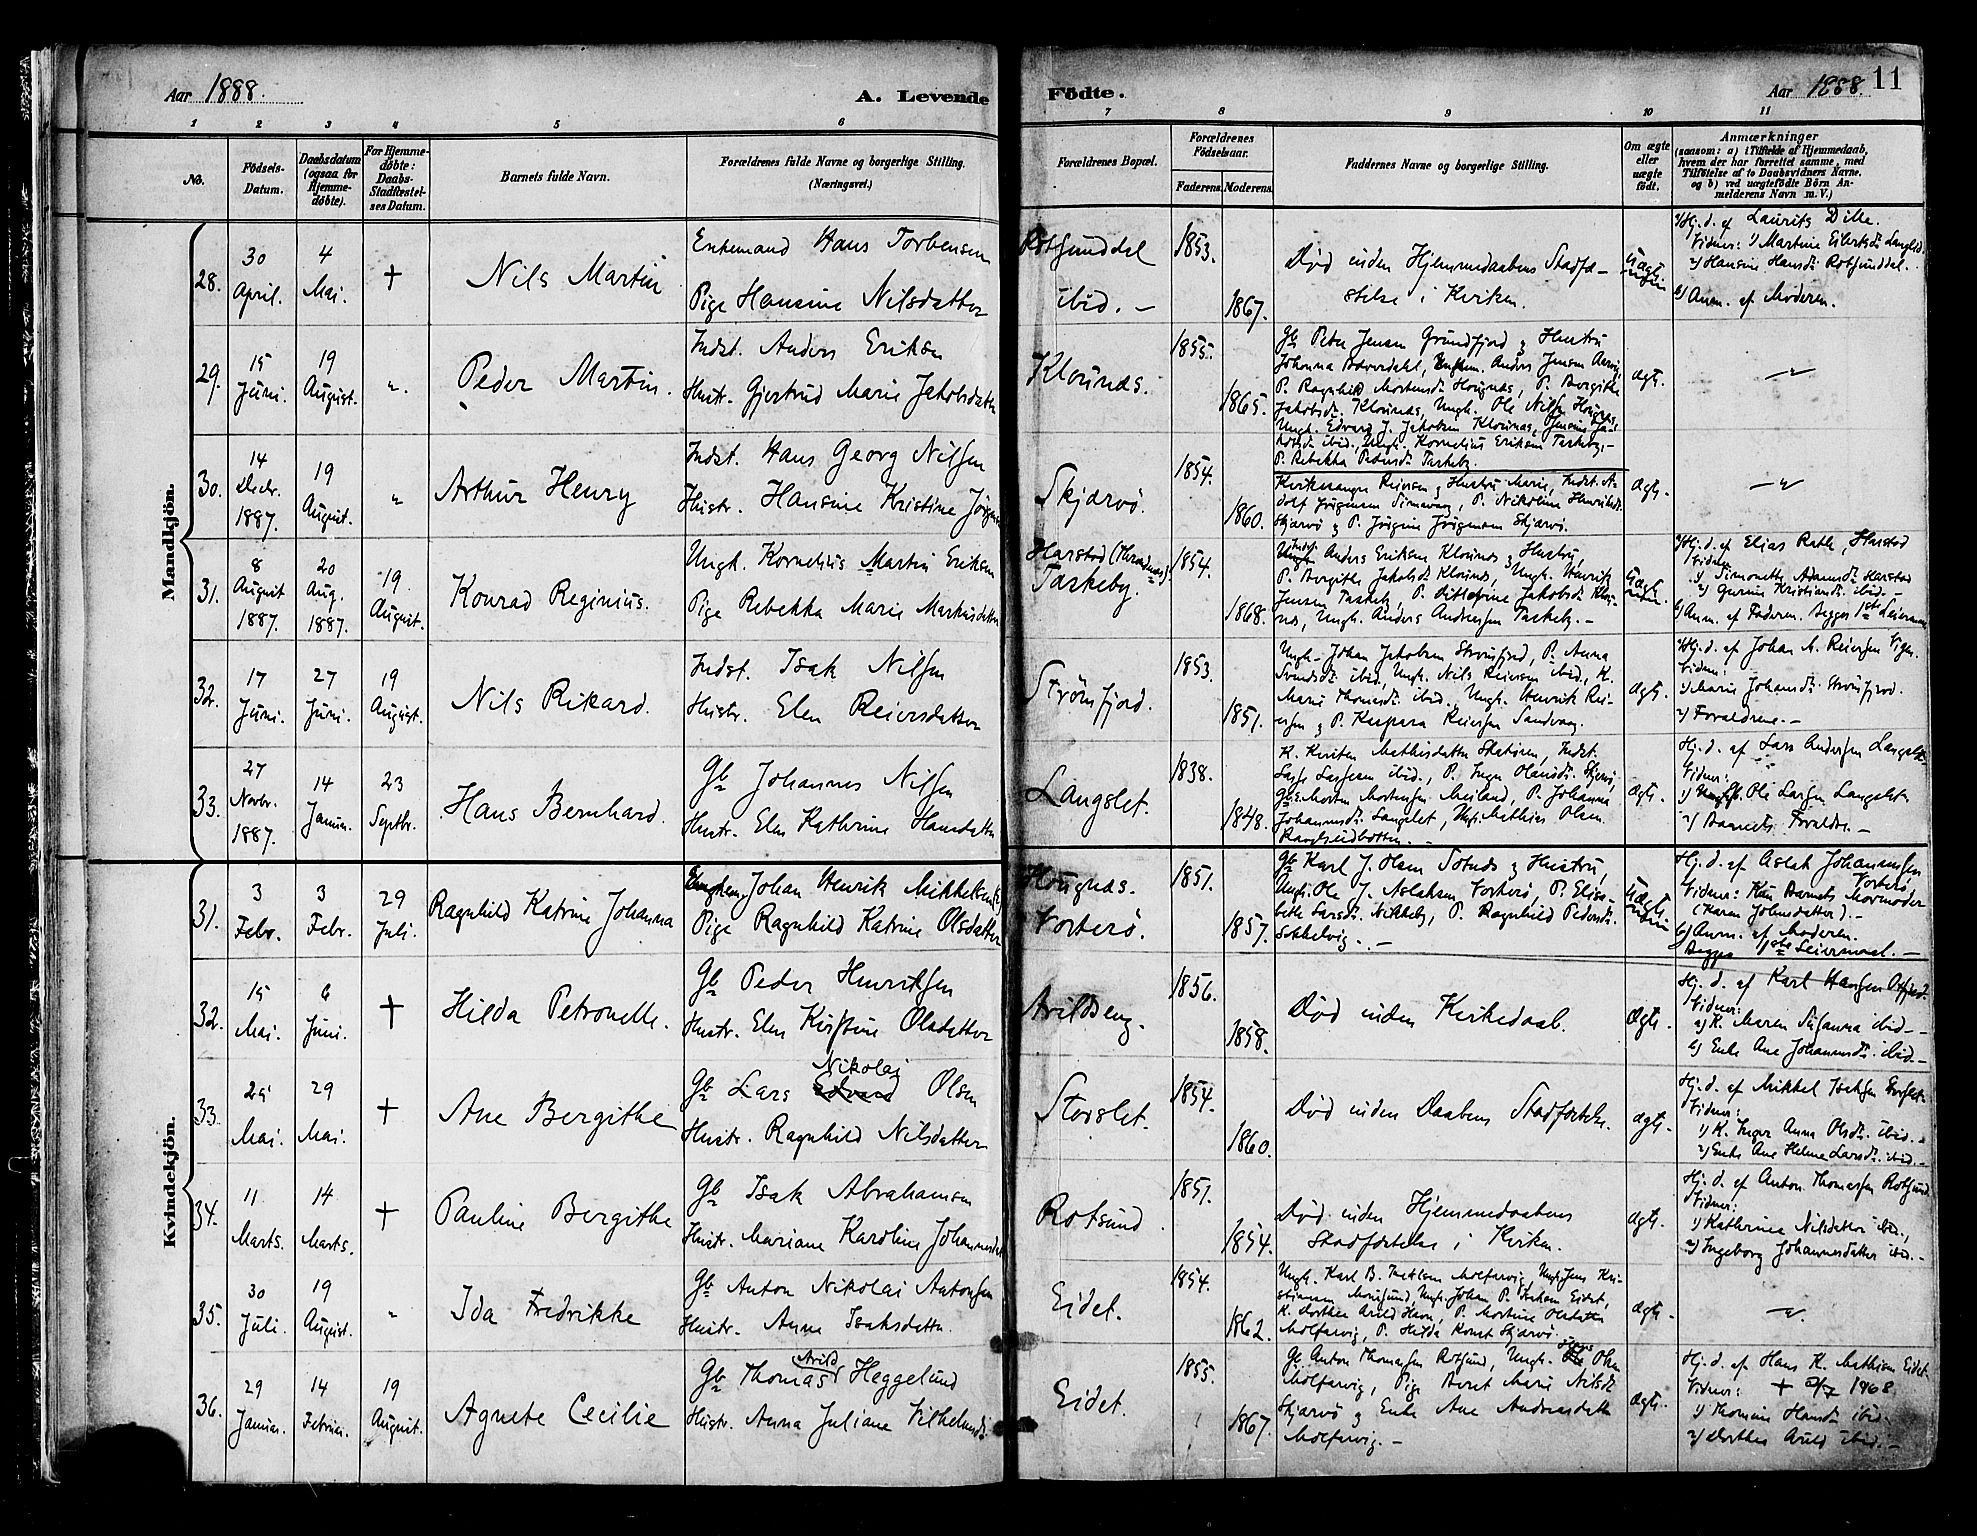 Aar 1888.
A. Levende
Födte.
Aar 1888.
11
1 2 3 4 5 6 7 8 9 10 11
No.
Födsels-
Datum.
Daabsdatum
(ogsaa for
Hjemme-
døbte).
For Hjemme-
døbte:
Daabs-
Stadfæstel-
ses Datum.
Barnets fulde Navn.
Forældrenes fulde Navne og borgerlige Stilling.
(Næringsvei.)
Forældrenes Bopæl.
Forældrenes
Födselsaar.
Faderens. Moderens.
Faddernes Navne og borgerlige Stilling.
Om ægte
eller
uægte
födt.
Anmærkninger
(saasom: a) i Tilfælde af Hjemmedaab,
hvem der har forrettet samme, med
Tilföielse af to Daabsvidners Navne,
og b) ved uægtefödte Börn An-
melderens Navn m. V.)
Mandkjön.
28.
30
April.
4
Mai.
+
Nils Martin
Enkemand Hans Torbensen
Pige Hansine Nilsdatter
Rotsunddal
ibid. -
1853.
1867.
Död inden Hjemmedaabens Stadfæ-
stelse i Kirken.
Hj. d. af Laurits Dille.
Vidner: 1) Martine Eilertsdr.
2) Hansine Hansdr. Rotsunddal.
b) Anm. af Moderen.
29.
15
Juni.
19
August.
"
Peder Martin.
Indst. Anders Eriksen
Hustr. Gjertrud Marie Jakobsdatter
Klounæs.
1855.
1865.
Gb. Peter Jensen Grundfjord & Hustru
P. Ragnhild Mortensdr. Hougnæs, P. Bergithe
Jakobsdr. Klounæs, Ungk. Ole Nilsen Hougnæs,
Ungk. Edvard J. Jakobsen Klounæs,
ibid., Ungk. Kornelius Eriksen Taskeby,
P. Rebekka Taskeby.
ægte.
30.
14
Decbr.
1887.
19
August.
"
Arthur Henry
Indst. Hans Georg Nilsen
Hustr. Hansine Kristine
Skjærvö.
1854.
1860.
Kirkesanger Reiersen & Hustru Marie, Indst. A-
dolf Jörgensen P. Nikoline
Skjærvö & P. Jörgine Jörgensen Skjærvö.
ægte.
31.
8
August
1887.
20
Aug.
1887.
19
August.
Konrad Reginius.
Ungk. Kornelius Martin Eriksen
Pige Rebekka Marie Markusdatter
Harstad
Taskeby.
1854.
1868.
Indst. Anders Eriksen Klounæs & Hustru,
P. Bergithe Jakobsdr. Klounæs, Ungk. Henrik
Jensen Taskeby, P. Jakobsdr. Klou-
næs, Ungk. Anders Andersen Taskeby. -
Hj. d. af Elias Rath, Harstad
Vidner:
1) Simonette Adamsdr. Harstad
2) Kristiansdr. ibid. -
b) Anm. af Faderen. Begges 1ste Leiermaal
32.
17
Juni.
27
Juni.
19
August.
Nils Rikard.
Indst. Isak Nilsen
Hustr. Elen Reiersdatter
Strömfjord.
1853.
1851.
Ungk. Johan Jakobsen Strömfjord, P. Anna
ibid., Ungk. Nils Reiersen ibid, K.
Marie Thomasdr. ibid., Ungk. Henrik Rei-
ersen & P. Kaspara Reiersen
ægte.
Hj. d. af Johan A. Reiersen
Vidner:
1) Marie Johansdr. Strömfjord.
2) Forældrene. -
33.
27
Novbr.
1887.
14
Januar.
23
Septbr.
Hans Bernhard.
Gb. Johannes Nilsen
Hustr. Elen Kathrine Hansdatter
Langslet.
1838.
1848.
K. Kirsten Mathisdatter Indst.
ibid., P. Inger
Morten Mortensen Meiland, P. Johanna
Johannesdr. Langslet, Ungk. Mathias Olsen
ægte.
Hj. d. af Lars Andersen Langslet
Vidner:
1) Ole Larsen Langslet
2) Barnets Forældre. -
Kvindekjön.
31.
3
Febr.
3
Febr.
29
Juli.
Ragnhild Katrine Johanna
Johan Henrik Mikkelsen
Pige Ragnhild Katrine Olsdatter
Hougnæs.
Vorterö.
1851.
1857.
Gb. Karl J. Olsen & Hustru,
Ungk. Ole J. Aslaksen Vorterö, P. Elisa-
beth Larsdr. Nikkeby, P. Ragnhild Pedersdr.
Hj. d. af Aslak Johannesen
Vorterö.
Vidner: Kun Barnets Mormoder
(Karen Johnsdatter). -
b) Anm. af Moderen.
Begges 1ste Leiermaal. -
32.
15
Mai.
6
Juni.
+
Hilda Petronelle.
Gb. Peder Henriksen
Hustr. Elen Kirstine Olsdatter
Avildseng.
1856.
1858.
Död inden Kirkedaab.
Ægte.
Hj. d. af Karl Hansen
Vidner:
a) K. Maren Susanna ibid. -
b) Enke Ane Johannesdr. ibid. -
33.
Mai.
29
Mai.
+
Ane Bergithe
Nikolai
Gb. Lars Edvard Olsen
Hustr. Ragnhild Nilsdatter
Storslet.
1854.
1860.
Död inden Daabens Stadfæstelse.
ægte.
Hj. d. af Mikkel Isaksen
Vidner:
1) K. Inger Anna Olsdr. ibid. -
2) Enke Ane Helene Larsdr. ibid. -
34.
11
Marts.
14
Marts.
+
Pauline Bergithe
Gb. Isak Abrahamsen
Hustr. Mariane Karoline
Rotsund.
1851.
1854.
Död inden Hjemmedaabens
Stadfæstelse i Kirken.
ægte.
Hj. d. af Anton Thomassen Rotsund.
Vidner:
1) Kathrine Nilsdatter ibid.,
2) Ingeborg Johannesdatter ibid. -
35.
30
Juli.
19
August.
"
Ida Fredrikke
Gb. Anton Nikolai Antonsen
Hustr. Anne Isaksdatter.
Eidet.
1854.
1862.
Ungk. Karl B. Isaksen Molfarvig, Ungk. Jens Kri-
stiansen Ungk. Johan P. Isaksen Eidet,
K. Dorthea Avild Havn, P. Martine Olsdatter
Molfarvig, P. Hilda Skjærvö.
ægte.
36.
29
Januar.
14
Februar.
19
August.
Agnete Cecilie
Avild
Gb. Thomas Heggelund
Hustr. Anna Juliane Vilhelmsdr.
Eidet.
1855.
1867.
Gb. Anton Thomassen Rotsund, Ungk. Olsen
Molfarvig, Pige Beret Marie Nilsdr.
Skjærvö & Enke Ane Andreasdatter
Molfarvig. -
ægte.
Hj. d. af Hans K. Mathisen Eidet.
Vidner: + 1968
1) Hansdr. ibid. -
2) Dorthea Avild ibid. -